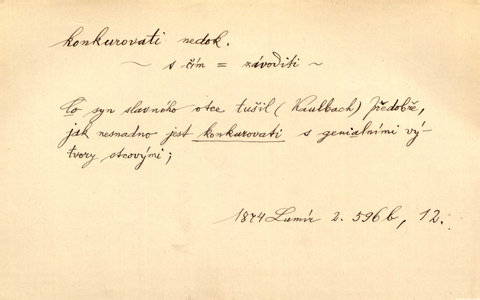 konkurovati nedok.
~ s čím = závoditi ~
Co syn slavného otce tušil (Kaulbach) předobře,
jak nesnadno jest konkurovati s genialními vý-
tvory otcovými;
1874 Lumír 2. 596 b, 12.